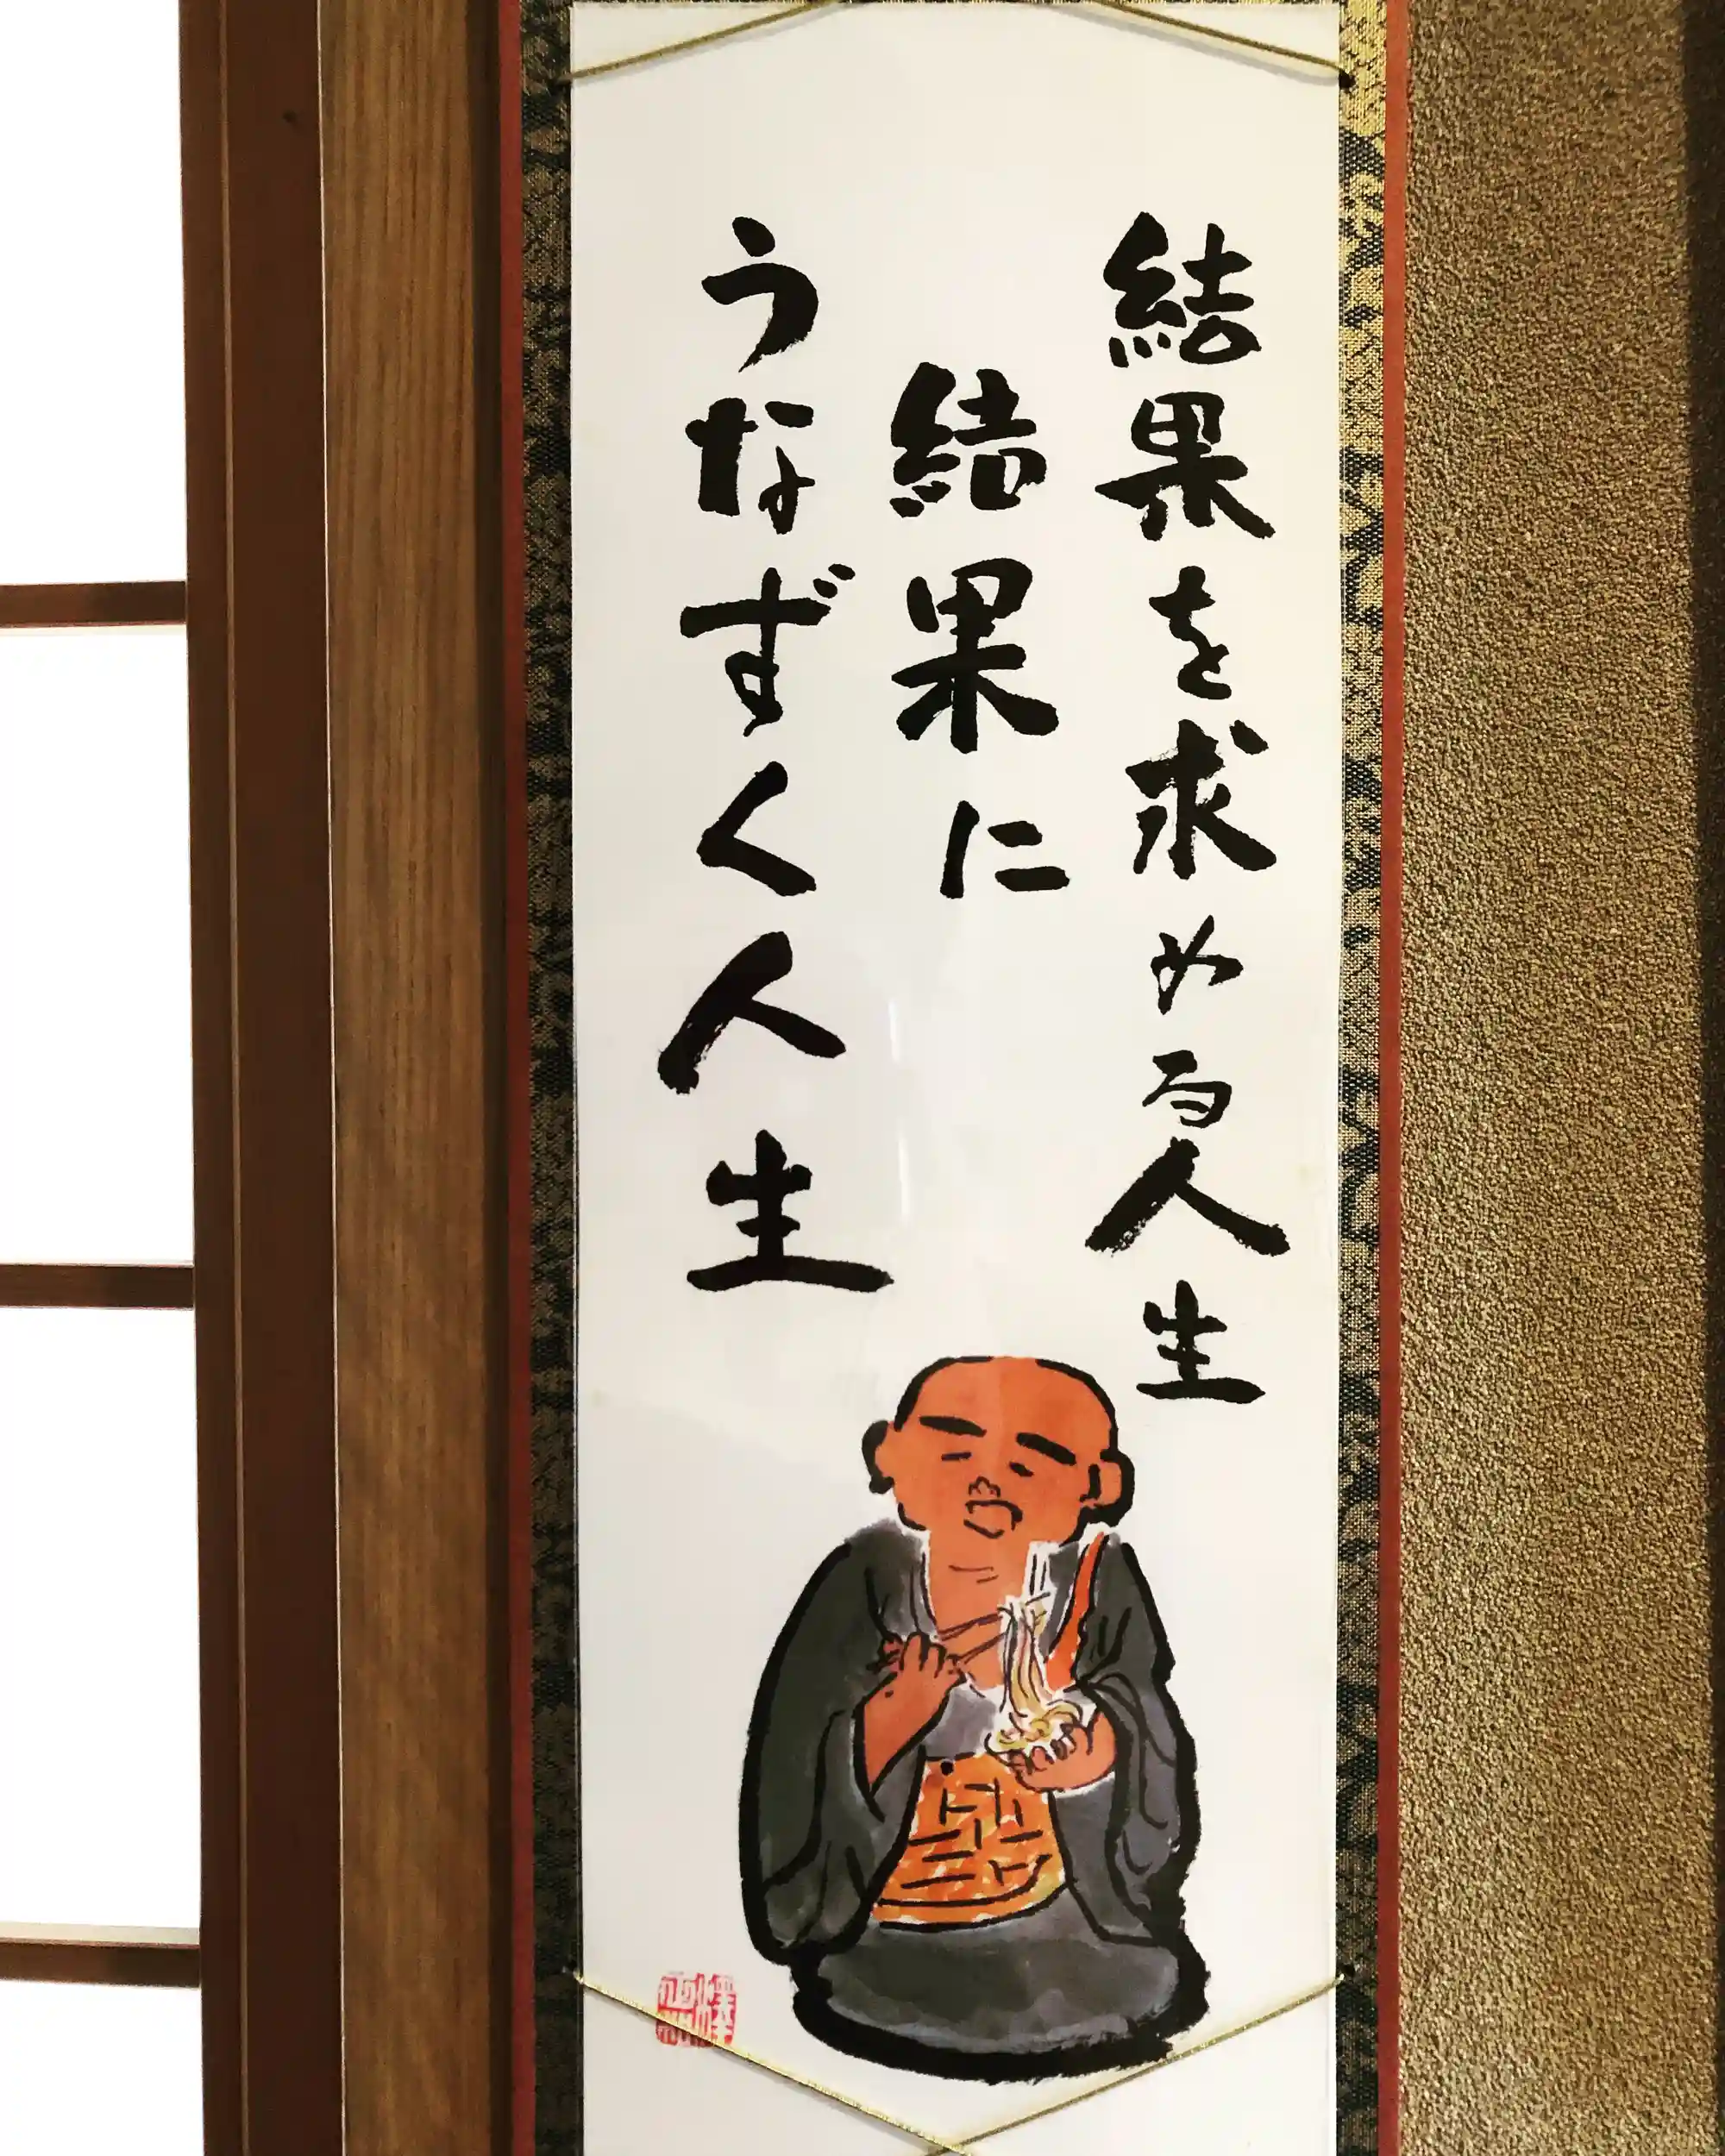 結果を求める人生
結果に
うなずく人生